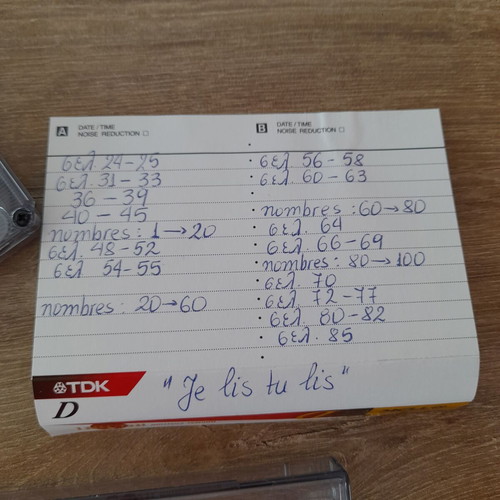 A DATE / TIME
NOISE REDUCTION
σελ 24-25
σελ. 31-33
36-39
40-45
nombres: 1→20
σελ. 48-52
σελ 54-55
nombres: 20→60
B DATE / TIME
NOISE REDUCTION
σελ 56-58
σελ. 60-63
nombres: 60→80
σελ. 64
σελ. 66-69
nombres: 80→100
σελ. 70
σελ. 72-77
σελ. 80-82
σελ. 85
TDK
D
"Je lis tu lis"